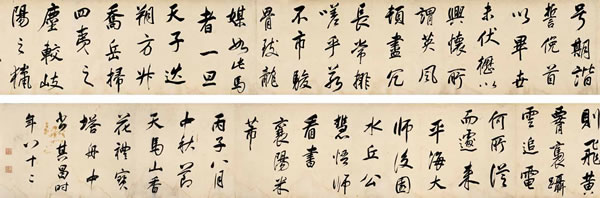 号期諧
誓俛首
以畢世
未伏櫪以
興懷所
謂英風
頓盡冗
長常排
嗟乎若
不市駿
骨致龍
媒如此馬
者一旦
天子巡
朔方升
喬岳掃
四夷之
塵較岐
陽之獵
則飛黃
褭躡
雲追電
何所從
而遽來
平海大
師後園
水丘公
慧悟師
看書
襄陽米
芾
丙子八月
中秋節
天馬山香
花禪寶
塔舟中
董其昌時
年八十二